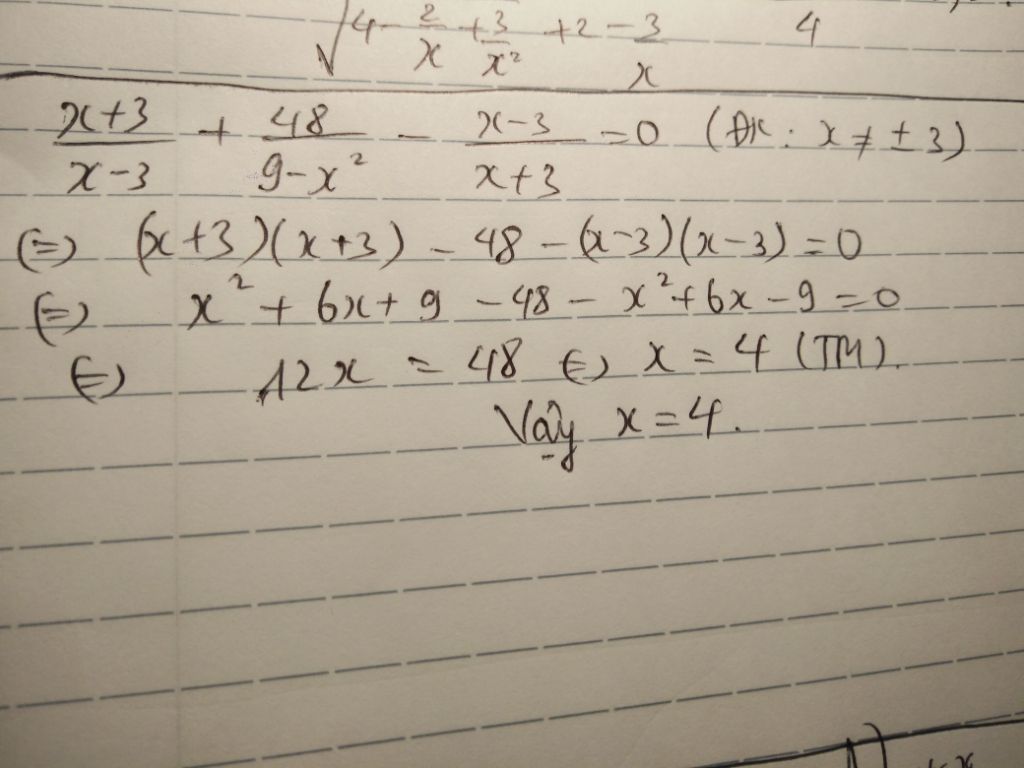 √(4 - 2/x + 3/x²) + 2 - 3/x 4
(x+3)/(x-3) + 48/(9-x²) - (x-3)/(x+3) = 0 (ĐK: x ≠ ±3)
(=) (x+3)(x+3) - 48 - (x-3)(x-3) = 0
(=) x² + 6x + 9 - 48 - x² + 6x - 9 = 0
(=) 12x = 48 (=) x = 4 (TM).
Vậy x = 4.